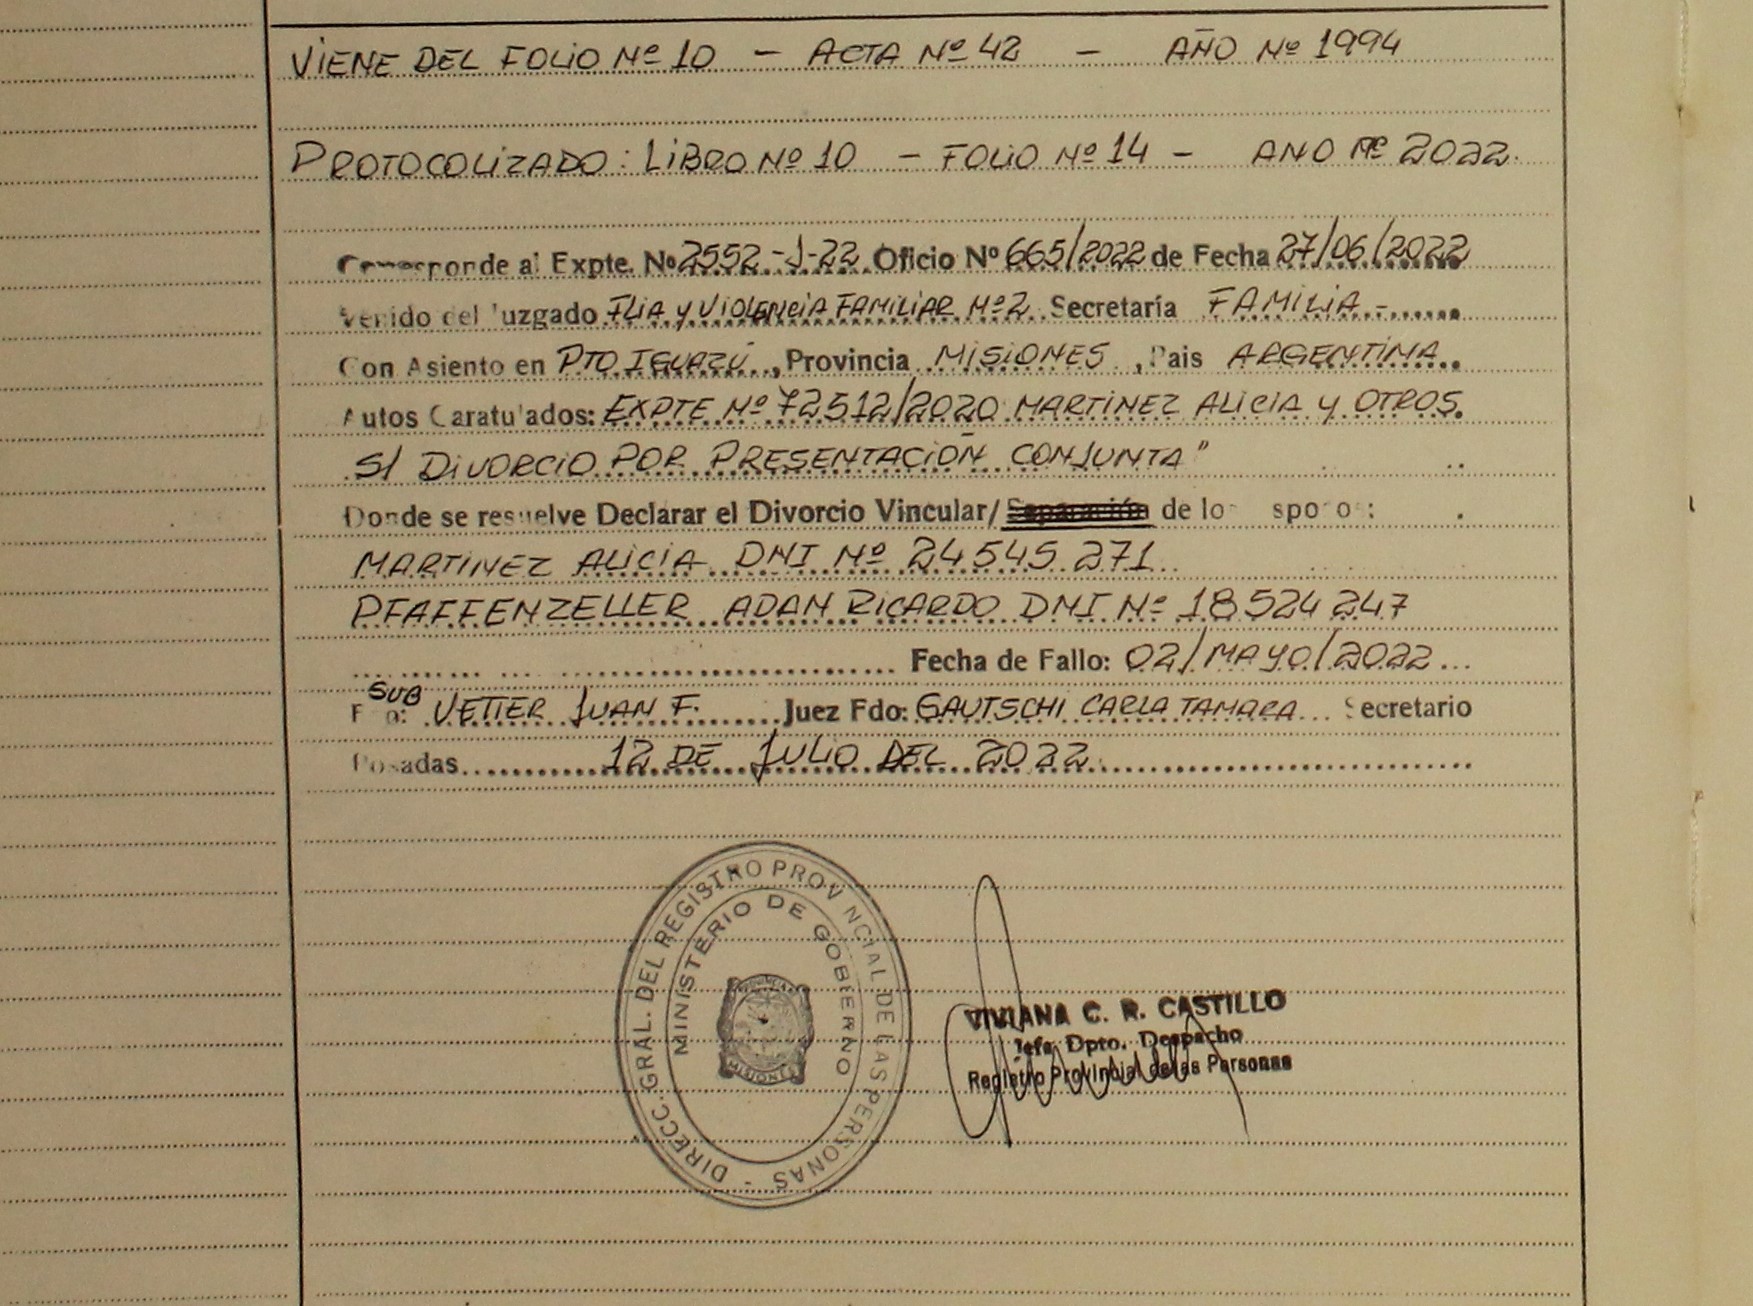 VIENE DEL FOLIO Nº 10 - ACTA Nº 42 - AÑO Nº 1994
PROTOCOLIZADO: LIBRO Nº 10 - FOLIO Nº 14 - ANO Nº 2022.
Corresponde al Expte. Nº 2552-J-22 Oficio Nº 665/2022 de Fecha 27/06/2022
Venido del Juzgado FLIA Y VIOLENCIA FAMILIAR Nº2 Secretaría FAMILIA.-
Con Asiento en PTO IGUAZÚ, Provincia MISIONES, Pais ARGENTINA
Autos Caratulados: EXPTE Nº 72512/2020 MARTINEZ ALICIA Y OTROS
S/ DIVORCIO POR PRESENTACIÓN CONJUNTA"
Donde se resuelve Declarar el Divorcio Vincular/Separación de los esposos:
MARTINEZ ALICIA DNI Nº 24.545.271
PFAFFENZELLER ADAN RICARDO DNI Nº 18524247
Fecha de Fallo: 02/MAYO/2022
SUB
Fdo: VETTER JUAN F. Juez Fdo: GAUTSCHI CARLA TAMARA Secretario
Posadas 12 DE JULIO DEL 2022
DIRECC. GRAL. DEL REGISTRO PROVINCIAL DE LAS PERSONAS -
MINISTERIO DE GOBIERNO
MISIONES
VIVIANA C. R. CASTILLO
Jefa Dpto. Despacho
Registro Provincial de las Personas